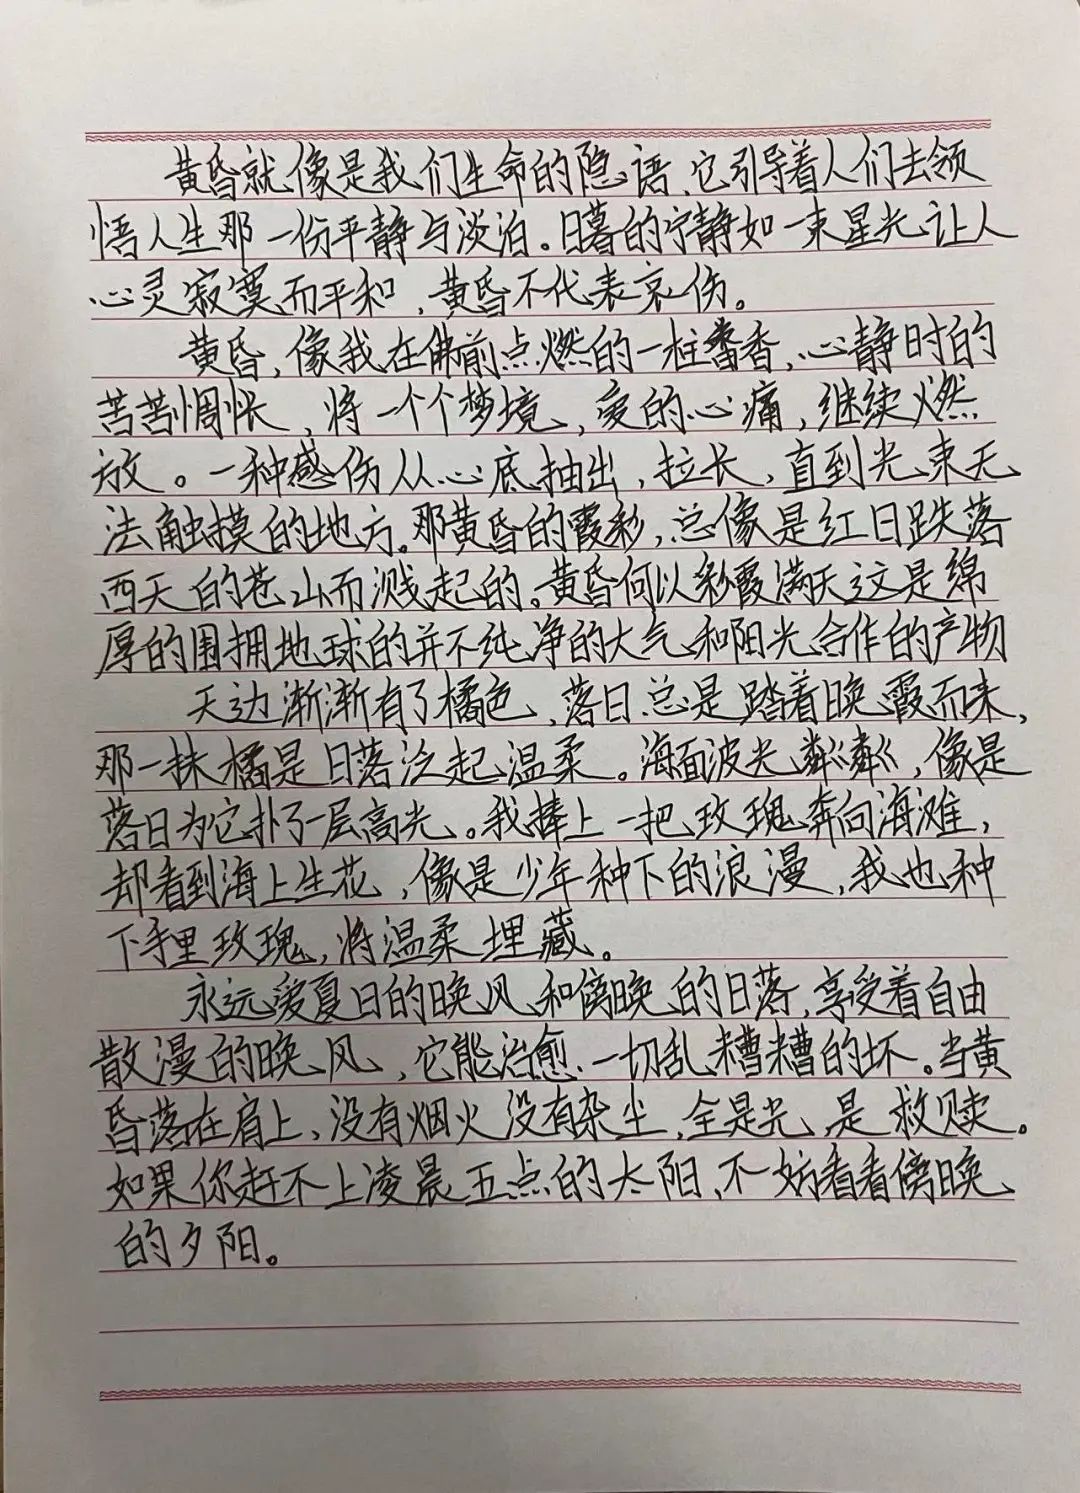 黄昏就像是我们生命的隐语、它引导着人们去领
悟人生那一份平静与淡泊。日暮的宁静如一束星光,让人
心灵寂寞而平和，黄昏不代表哀伤。
黄昏，像我在佛前点燃的一柱香,心静时的
苦苦惆怅，将一个个梦境、爱的心痛，继续燃
放。一种感伤从心底抽出，拉长，直到光束无
法触摸的地方。那黄昏的霞彩，总像是红日跌落
西天的苍山而溅起的。黄昏何以彩霞满天这是绵
厚的围拥地球的并不纯净的大气和阳光合作的产物
天边渐渐有了橘色，落日总是踏着晚霞而来，
那一抹橘是日落泛起温柔。海面波光粼粼，像是
落日为它扑了一层高光。我捧上一把玫瑰奔向海滩，
却看到海上生花，像是少年种下的浪漫，我也种
下手里玫瑰，将温柔埋藏。
永远爱夏日的晚风和傍晚的日落，享受着自由
散漫的晚风，它能治愈一切乱糟糟的坏。当黄
昏落在肩上，没有烟火没有杂尘，全是光，是救赎。
如果你赶不上凌晨五点的太阳、不妨看看傍晚
的夕阳。